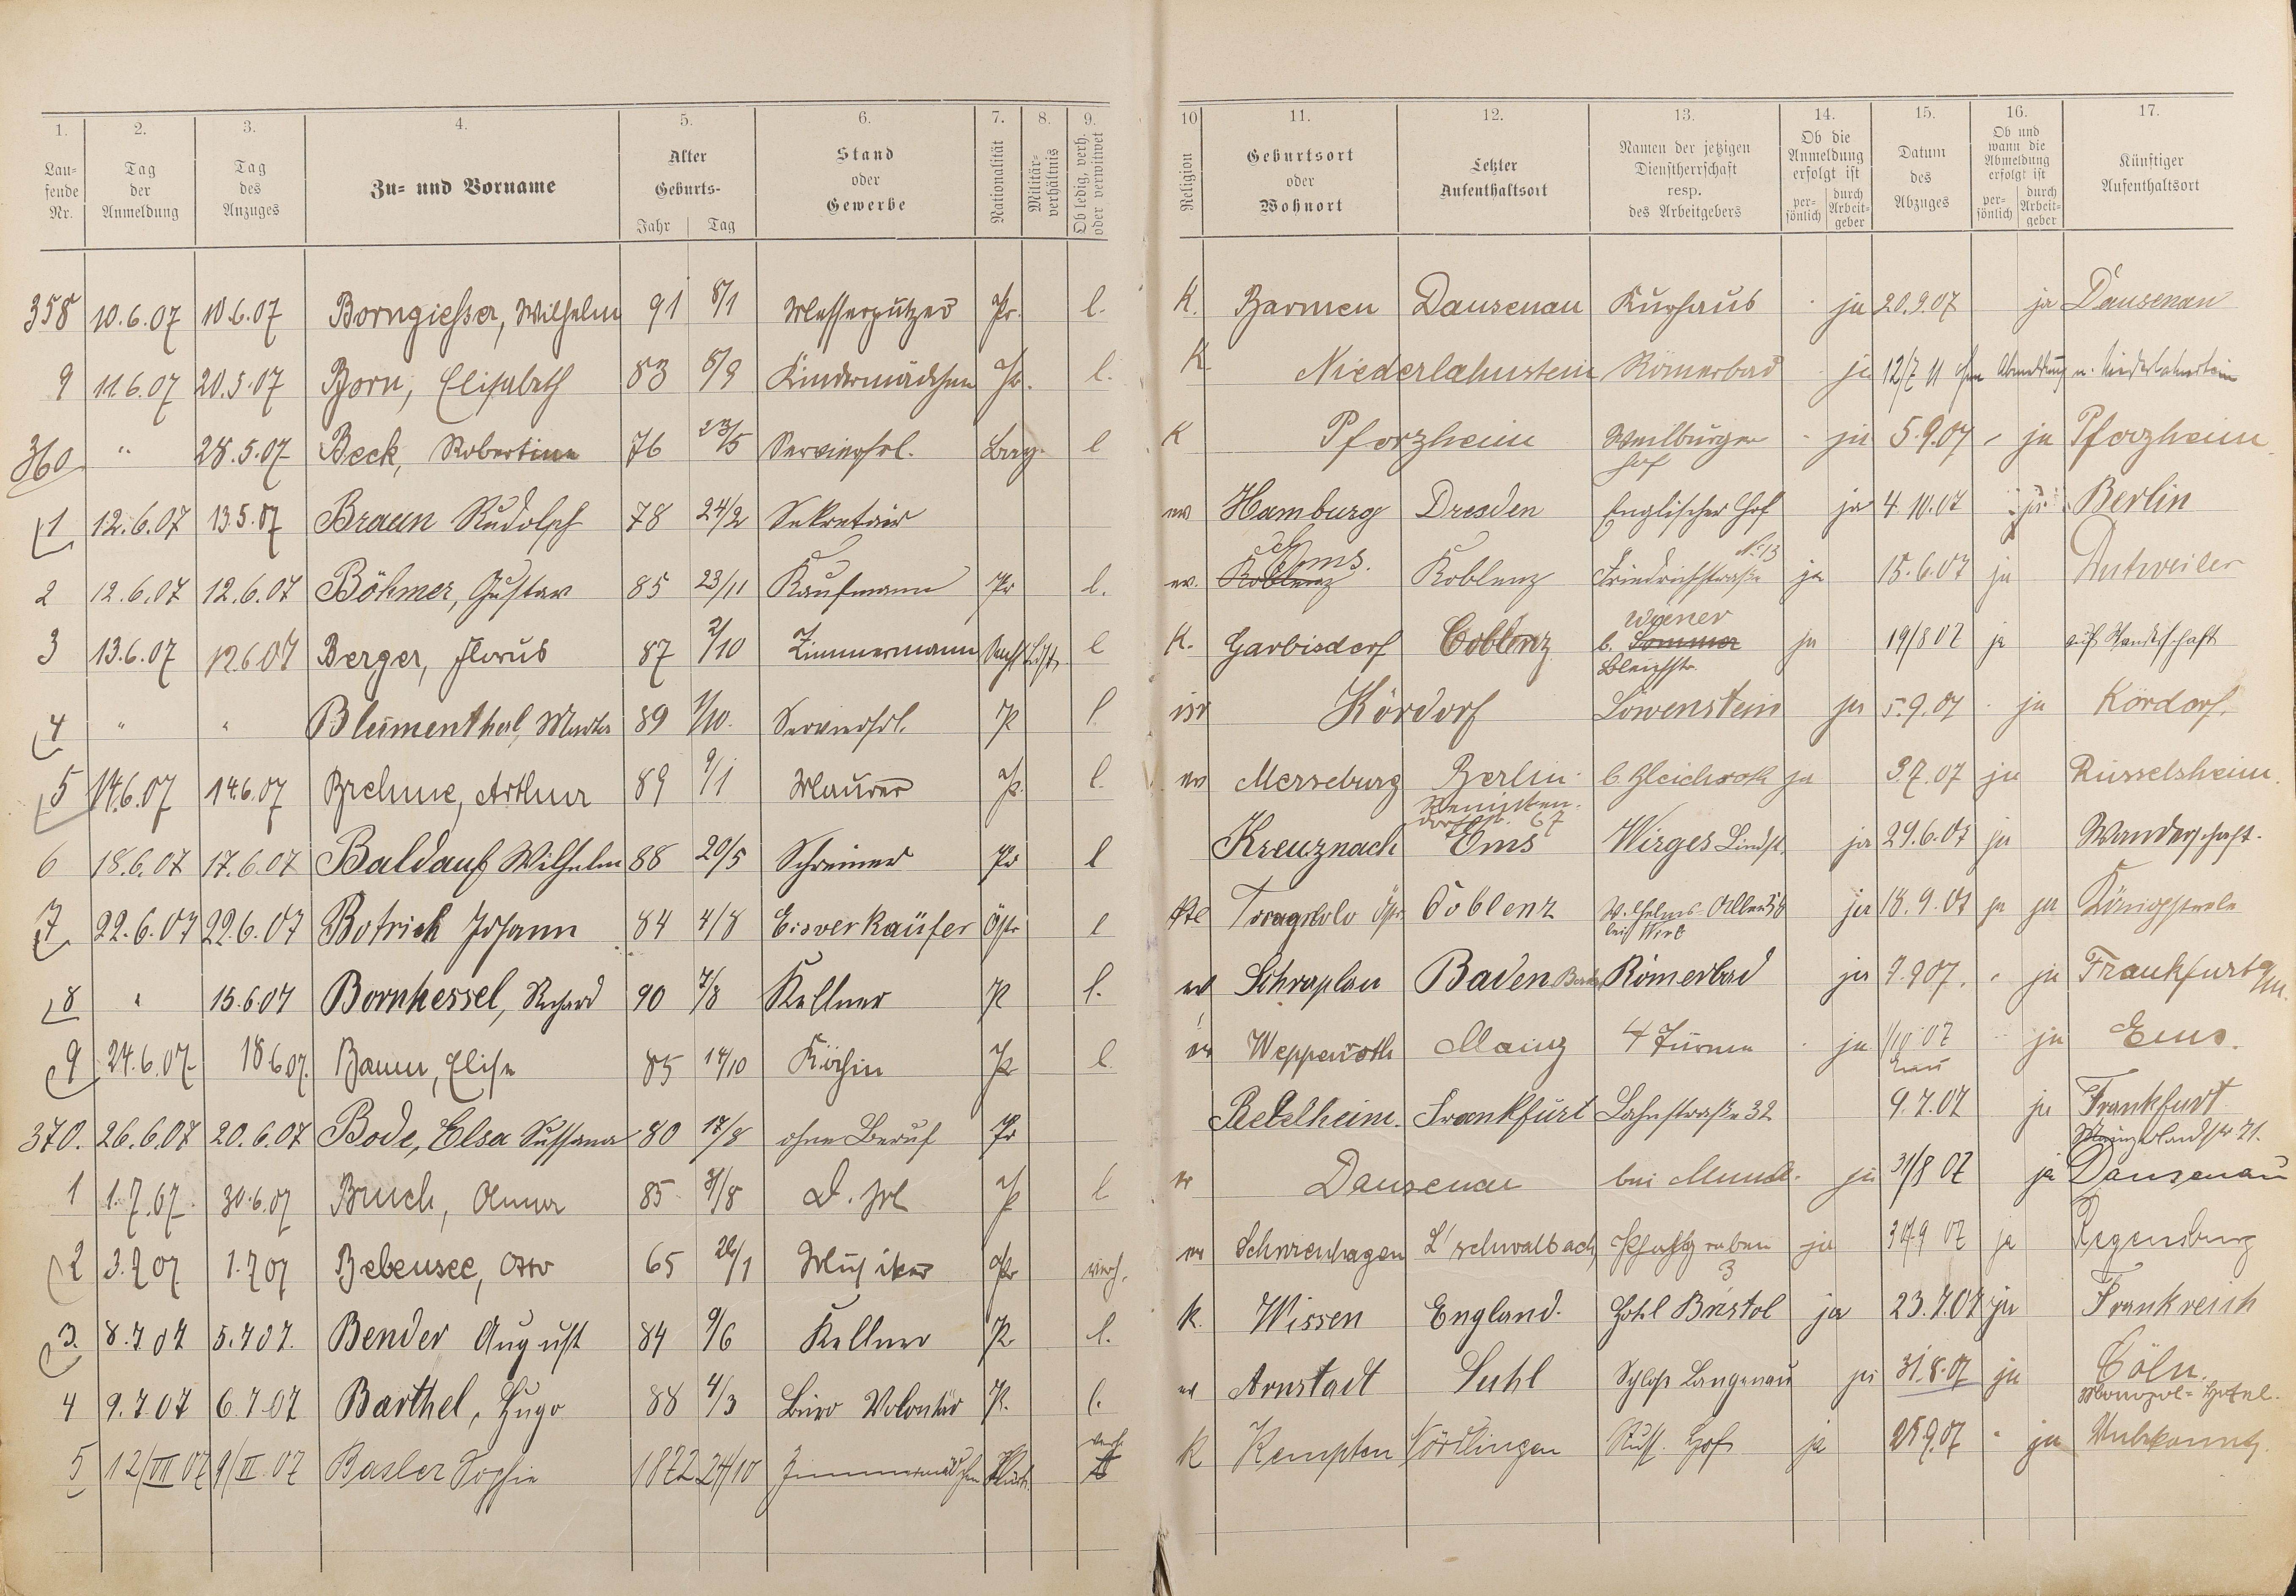 1. 2. 3. 4. 5. 6. 7. 8. 9. 10 11. 12. 13. 14. 15. 16. 17.
Laufende Nr. Tag der Anmeldung Tag des Anzuges Zu= und Vorname Alter Geburts- Jahr Tag Stand oder Gewerbe Nationalität Militär-verhältnis Ob ledig, verh. oder verwitwet Religion Geburtsort oder Wohnort Letzter Aufenthaltsort Namen der jetzigen Dienstherrschaft resp. des Arbeitgebers Ob die Anmeldung erfolgt ist per-sönlich durch Arbeit-geber Datum des Abzuges Ob und wann die Abmeldung erfolgt ist per-sönlich durch Arbeit-geber Künftiger Aufenthaltsort
358 10.6.07 10.6.07 Borngiesser, Wilhelm 91 8/1 Messerputzer Pr. l. K. Barmen Dausenau Kurhaus ja 20.9.07 ja Dausenau
9 11.6.07 20.5.07 Born, Elisabeth 83 8/9 Kindermädchen Pr. l. K Niederlahnstein Römerbad ja 12/7 11 ohne Abmeldung n. Niederlahnstein
360 " 28.5.07 Beck, Robertine 76 23/5 Servierfrl. l K Pforzheim Weilburger Hof - ja 5.9.07 - ja Pforzheim
1 12.6.07 13.5.07 Braun Rudolph 78 24/2 Sekretär ev Hamburg Dresden Englischer Hof ja 4.10.07 ja Berlin
2 12.6.07 12.6.07 Böhmer, Gustav 85 23/11 Kaufmann Pr l. ev. Koblenz Ems. Koblenz Friedrichstraße No. 13 ja 15.6.07 ja Antweiler
3 13.6.07 12.6.07 Berger, Florus 87 2/10 Zimmermann l K. Garbisdorf Coblenz b. Sommer Bleichstr. ja 19/8 07 ja auf Wanderschaft
4 " " Blumenthal, Martha 89 1/10. Servierfrl. Pr l isr Kördorf Löwenstein ja 5.9.07 ja Kördorf.
5 14.6.07 14.6.07 Brehme, Arthur 89 9/1 Maurer Pr. l. ev Merseburg Berlin ja 3.7.07 ja Rüsselsheim.
6 18.6.07 17.6.07 Baldauf Wilhelm 88 20/5 Schreiner Pr l Kreuznach Ems Wirges Lindst. ja 29.6.07 ja Wanderschaft.
7 22.6.07 22.6.07 Botrich Johann 84 4/8 Eisverkäufer Östr l Coblenz Wilhelms-Allee ja 18.9.07 ja ja
8 " 15.6.07 Bornkessel, Richard 90 7/8 Kellner Pr l. ev Schraplau Baden Baden Römerbad ja 7.9.07. " ja Frankfurt a/M.
9 24.6.07 18.6.07. Baum, Elise 85 14/10 Köchin Pr l. ev Wepperoth Mainz 4 Türme ja 1/10 07 ja Ems.
370. 26.6.07 20.6.07 Bode, Elsa Sussana 80 17/8 ohne Beruf Pr Frankfurt Lahnstraße 32 9.7.07 ja Frankfurt Mainzerlandstr 21.
1 1.7.07. 30.6.07 Bruch, Anna 85 31/8 D. frl Pr l ev Dausenau bei ja 31/8 07 ja Dausenau
2 3.7.07 1.7.07 Bebensee, Otto 65 26/1 Musiker Pr verh. ev L'schwalbach Pfahlgraben 3 ja 30.9 07 ja Regensburg
3. 8.7.07 5.7.07. Bender August 84 9/6 Kellner Pr l. k. Wissen England. Hotel Bristol ja 23.7.07 ja Frankreich
4 9.7.07 6.7.07 Barthel, Hugo 88 4/3 Büro Volontär Pr. l. ev Arnstadt Suhl Schloß Langenau ja 31.8.07 ja Cöln. Monopol=Hotel.
5 12/VII 07 9/II 07 Basler Sophie 1872 24/10 Zimmermädchen verh k Kempten Nördlingen Russ. Hof ja 25.9.07 " ja Unbekannt.